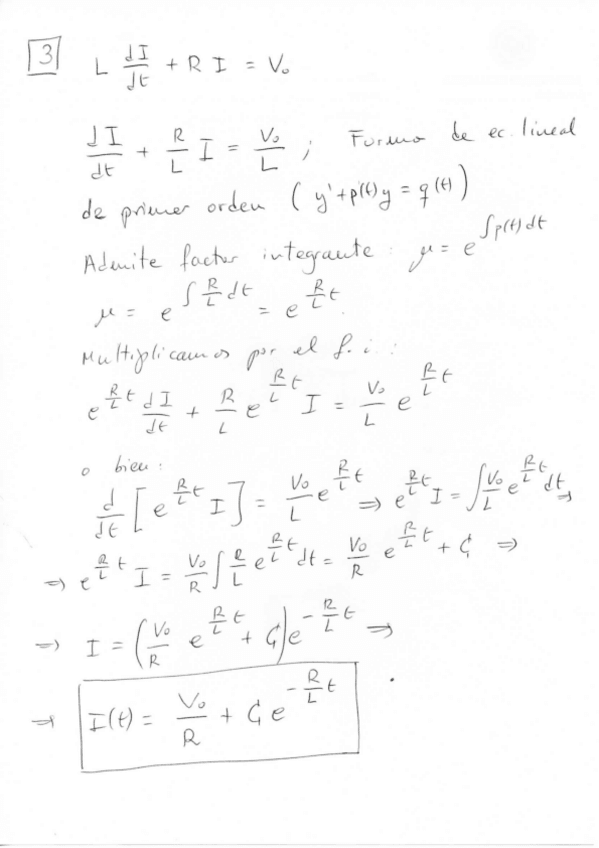 3 L dI/dt + R I = V₀
dI/dt + R/L I = V₀/L ; Forma de ec. lineal
de primer orden ( y' + p(t) y = q(t) )
Admite factor integrante : μ = e^{∫p(t)dt}
μ = e^{∫ R/L dt} = e^{R/L t}.
Multiplicamos por el f. i. :
e^{R/L t} dI/dt + R/L e^{R/L t} I = V₀/L e^{R/L t}
o bien :
d/dt [ e^{R/L t} I ] = V₀/L e^{R/L t} ⇒ e^{R/L t} I = ∫ V₀/L e^{R/L t} dt ⇒
⇒ e^{R/L t} I = V₀/R ∫ R/L e^{R/L t} dt = V₀/R e^{R/L t} + C₁ ⇒
⇒ I = ( V₀/R e^{R/L t} + C₁ ) e^{-R/L t} ⇒
⇒ I(t) = V₀/R + C₁ e^{-R/L t}